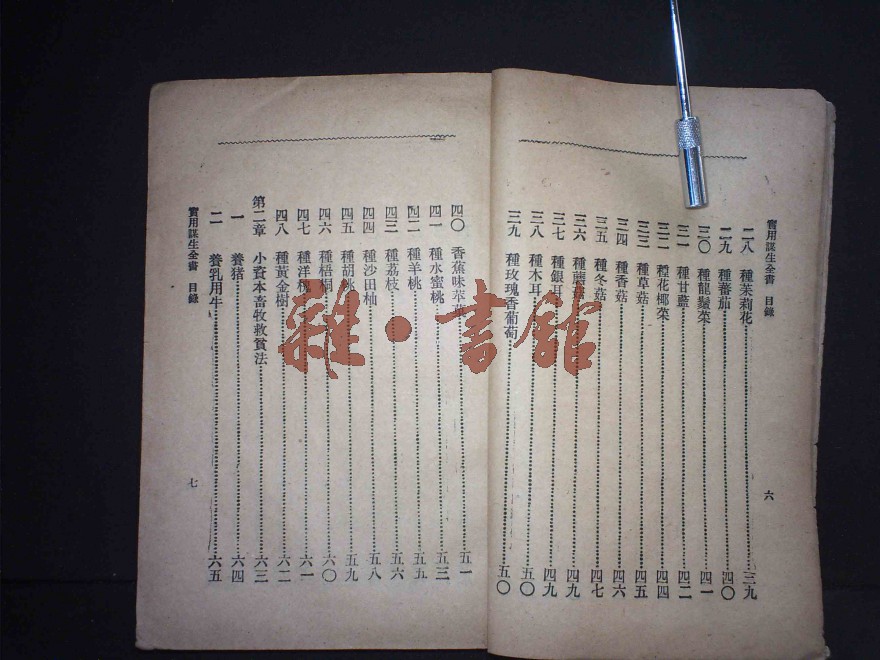 實用謀生全書 目錄
二八 種茉莉花 三九
二九 種蕃茄 四〇
三〇 種龍鬚菜 四一
三一 種甘藍 四二
三二 種花椰菜 四四
三三 種草菇 四五
三四 種香菇 四六
三五 種冬菇 四七
三六 種 菇 四九
三七 種銀耳 四九
三八 種木耳 五〇
三九 種玫瑰香葡萄 五〇
六
四〇 香蕉味苹果 五一
四一 種水蜜桃 五三
四二 種羊桃 五五
四三 種荔枝 五六
四四 種沙田柚 五八
四五 種胡桃 五九
四六 種梧桐 六〇
四七 種洋槐 六一
四八 種黃金樹 六二
第二章 小資本畜牧救貧法 六三
一 養猪 六四
二 養乳用牛 六五
實用謀生全書 目錄
七
雜·書館